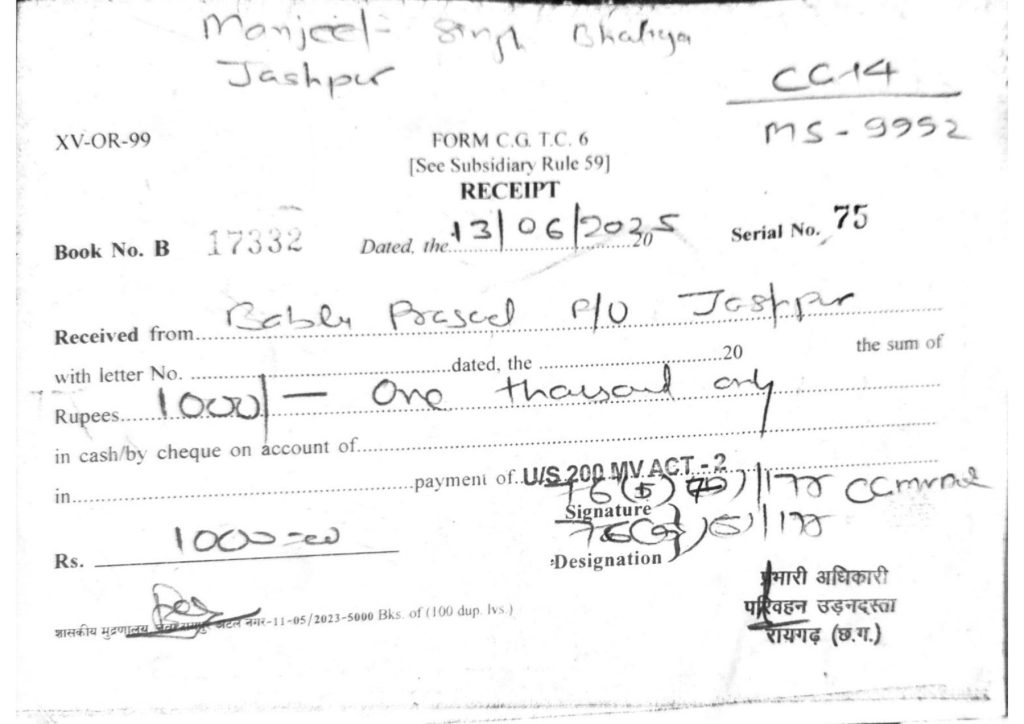 Manjeet Singh Bhatiya
Jashpur
CG-14
MS-9952
XV-OR-99
FORM C.G. T.C. 6
[See Subsidiary Rule 59]
RECEIPT
Book No. B 17332 Dated, the 13/06/2025 20 Serial No. 75
Received from Bablu Prasad P/O Jashpur
with letter No. dated, the 20 the sum of
Rupees 1000/- One thousand only
in cash/by cheque on account of
in payment of U/S 200 MV ACT - 2
76(5) /177 CGMVR
Signature
76( )(5)/177
Rs. 1000=00
Designation
प्रभारी अधिकारी
परिवहन उड़नदस्ता
रायगढ़ (छ.ग.)
शासकीय मुद्रणालय, अटल नगर-11-05/2023-5000 Bks. of (100 dup. lvs.)